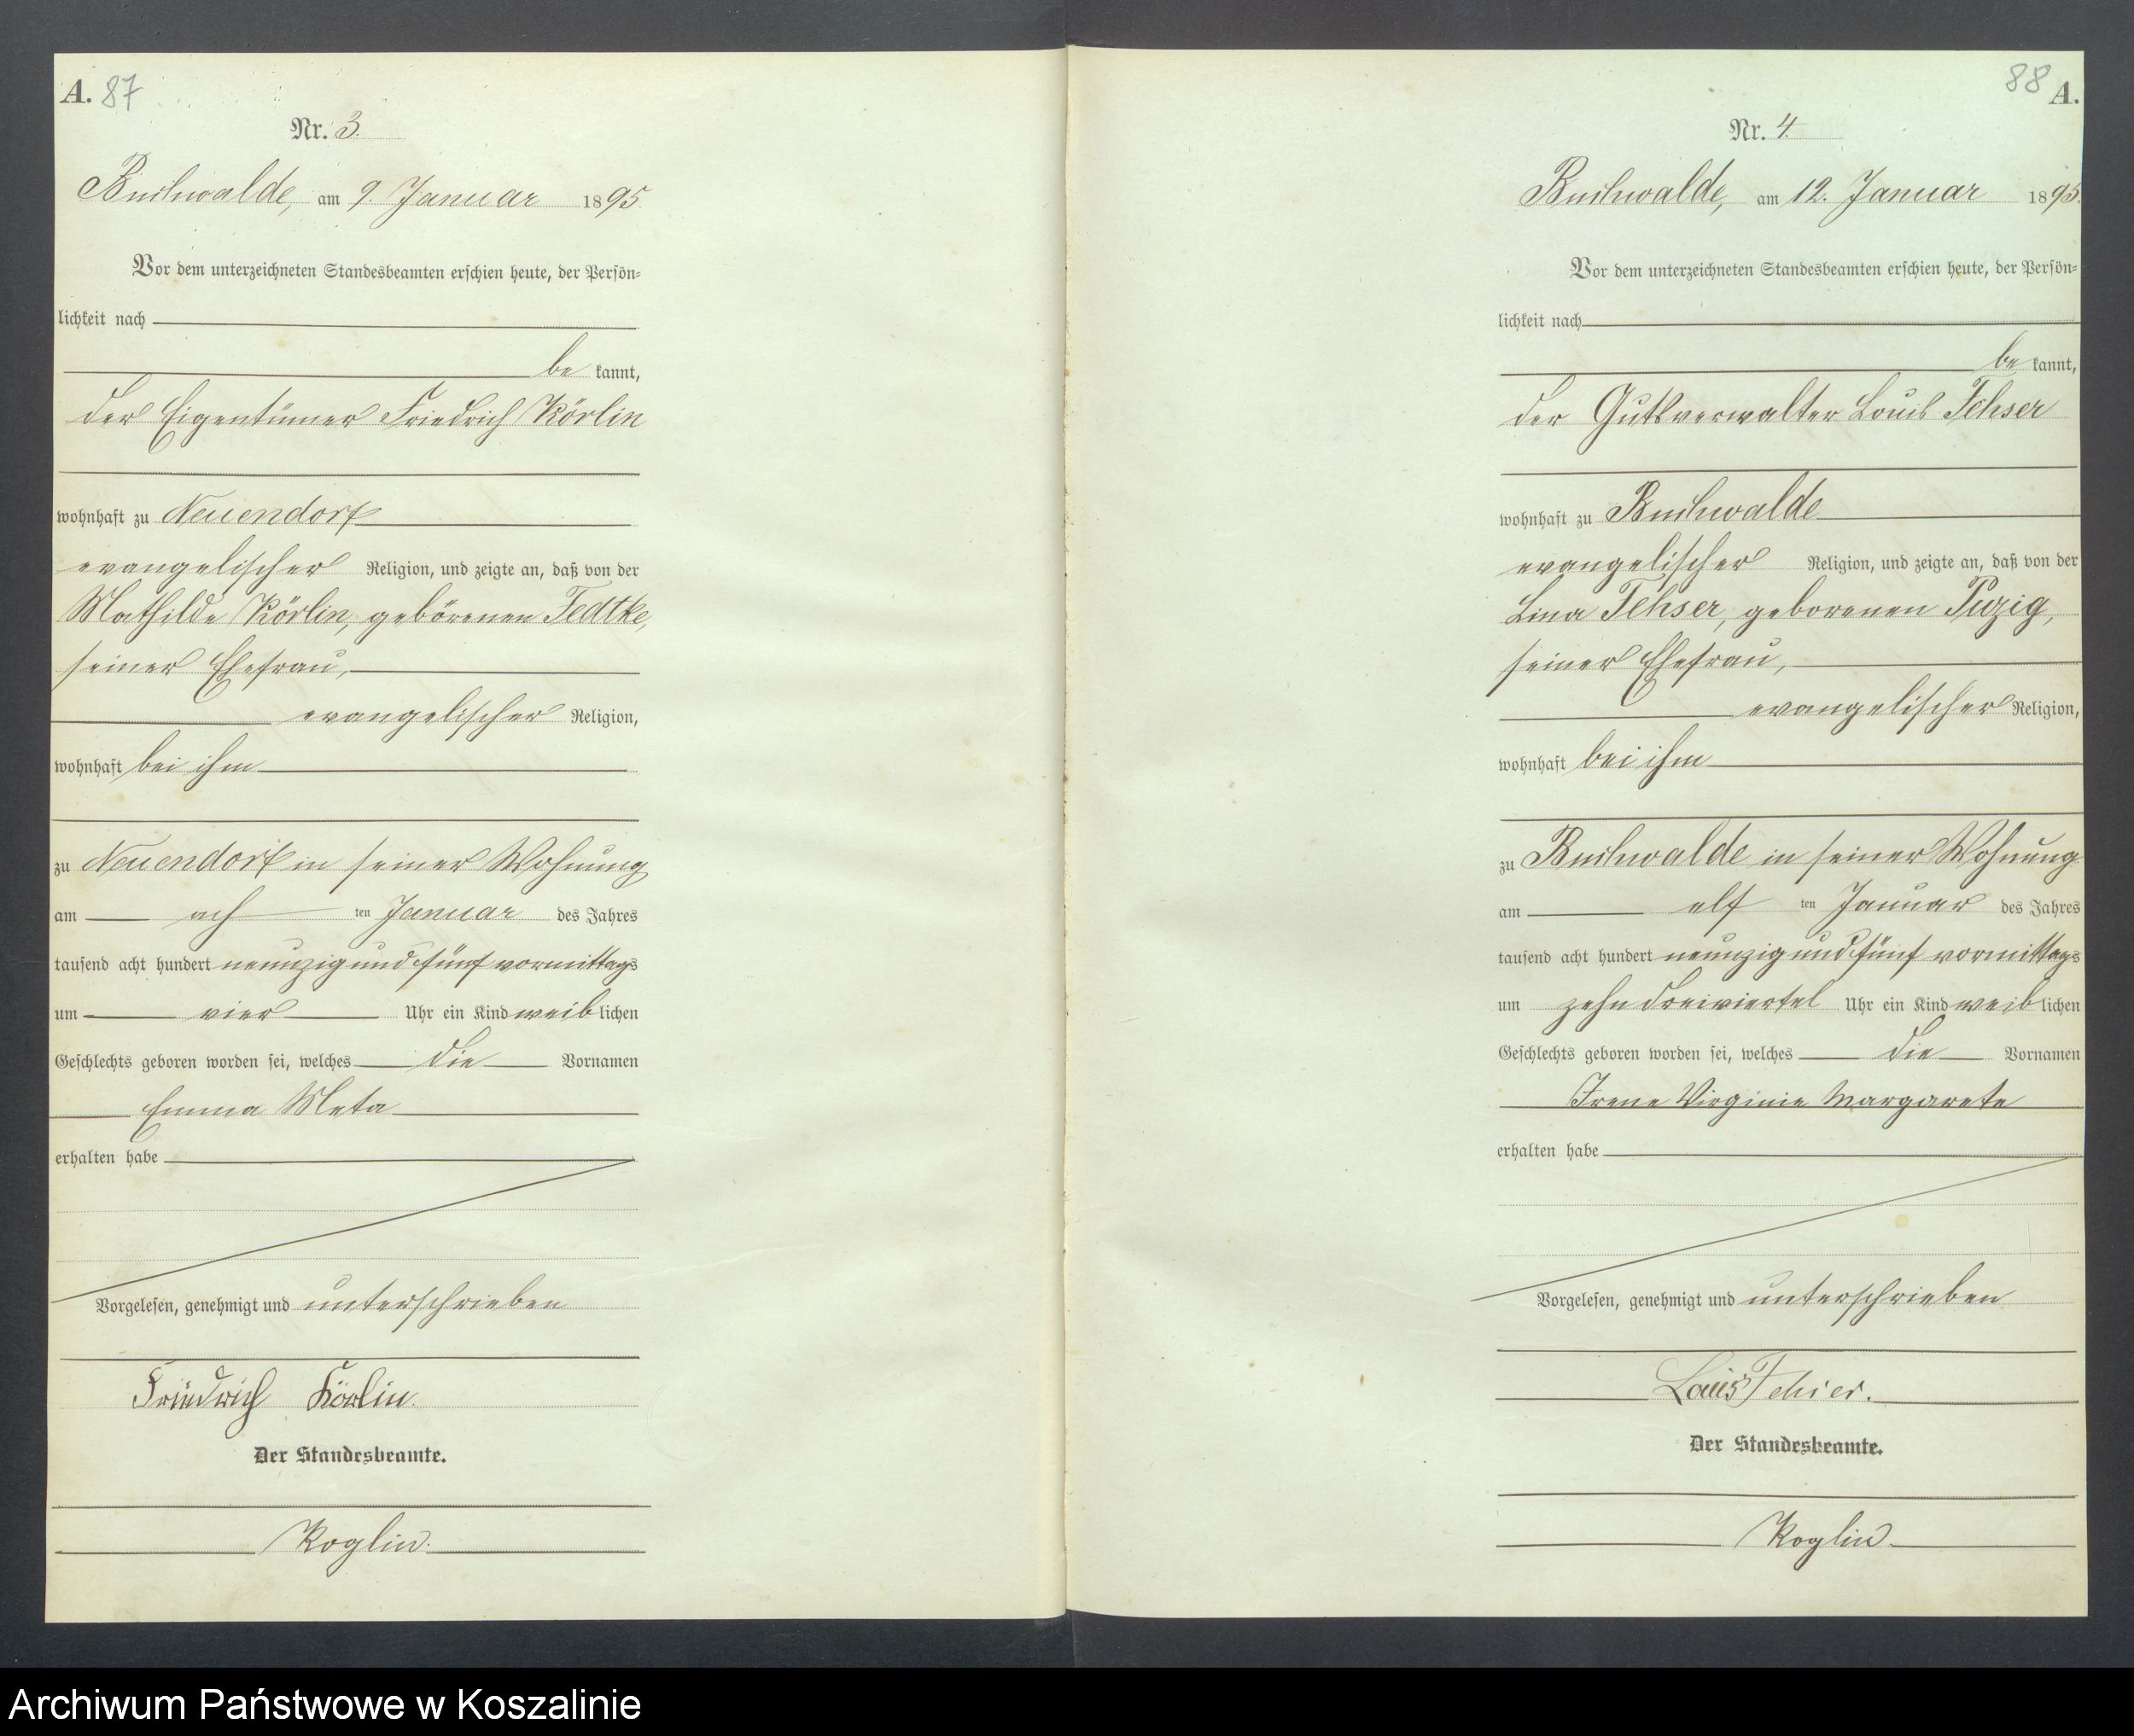 A. 87
Nr. 3.
Buchwalde, am 9. Januar 1895
Vor dem unterzeichneten Standesbeamten erschien heute, der Persön=
lichkeit nach
be kannt,
der Eigentümer Friedrich Körlin
wohnhaft zu Neuendorf
evangelischer Religion, und zeigte an, daß von der
Mathilde Körlin, geborenen Fedtke,
seiner Ehefrau,
evangelischer Religion,
wohnhaft bei ihm
zu Neuendorf in seiner Wohnung
am ach ten Januar des Jahres
tausend acht hundert neunzig und fünf vormittags
um vier Uhr ein Kind weiblichen
Geschlechts geboren worden sei, welches die Vornamen
Emma Meta
erhalten habe
Vorgelesen, genehmigt und unterschrieben
Friedrich Körlin.
Der Standesbeamte.
Koglin.
88 A.
Nr. 4.
Buchwalde, am 12. Januar 1895.
Vor dem unterzeichneten Standesbeamten erschien heute, der Persön=
lichkeit nach
be kannt,
der Gutsverwalter Louis Fehser
wohnhaft zu Buchwalde
evangelischer Religion, und zeigte an, daß von der
Lina Fehser, geborenen Puzig,
seiner Ehefrau,
evangelischer Religion,
wohnhaft bei ihm
zu Buchwalde in seiner Wohnung
am elf ten Januar des Jahres
tausend acht hundert neunzig und fünf vormittags
um zehn dreiviertel Uhr ein Kind weiblichen
Geschlechts geboren worden sei, welches die Vornamen
Irene Virginie Margarete
erhalten habe
Vorgelesen, genehmigt und unterschrieben
Louis Fehser.
Der Standesbeamte.
Koglin
Archiwum Państwowe w Koszalinie